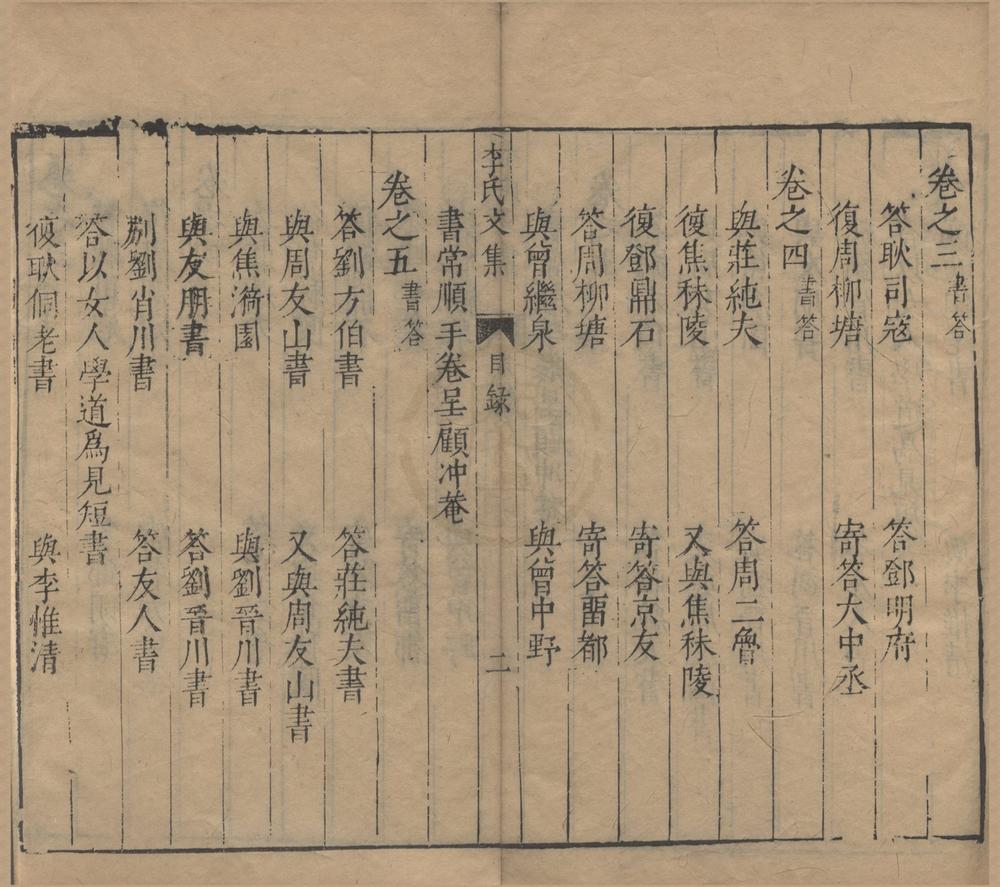 卷之三 書答
答耿司寇 答鄧明府
復周柳塘 寄答大中丞
卷之四 書答
與莊純夫 答周二魯
復焦秣陵 又與焦秣陵
復鄧鼎石 寄答京友
答周柳塘 寄答畱都
與曾繼泉 與曾中野
李氏文集 目錄 二
書常順手卷呈顧冲菴
卷之五 書答
答劉方伯書 答莊純夫書
與周友山書 又與周友山書
與焦漪園 與劉晉川書
與友朋書 答劉晉川書
別劉肖川書 答友人書
答以女人學道爲見短書
復耿侗老書 與李惟清